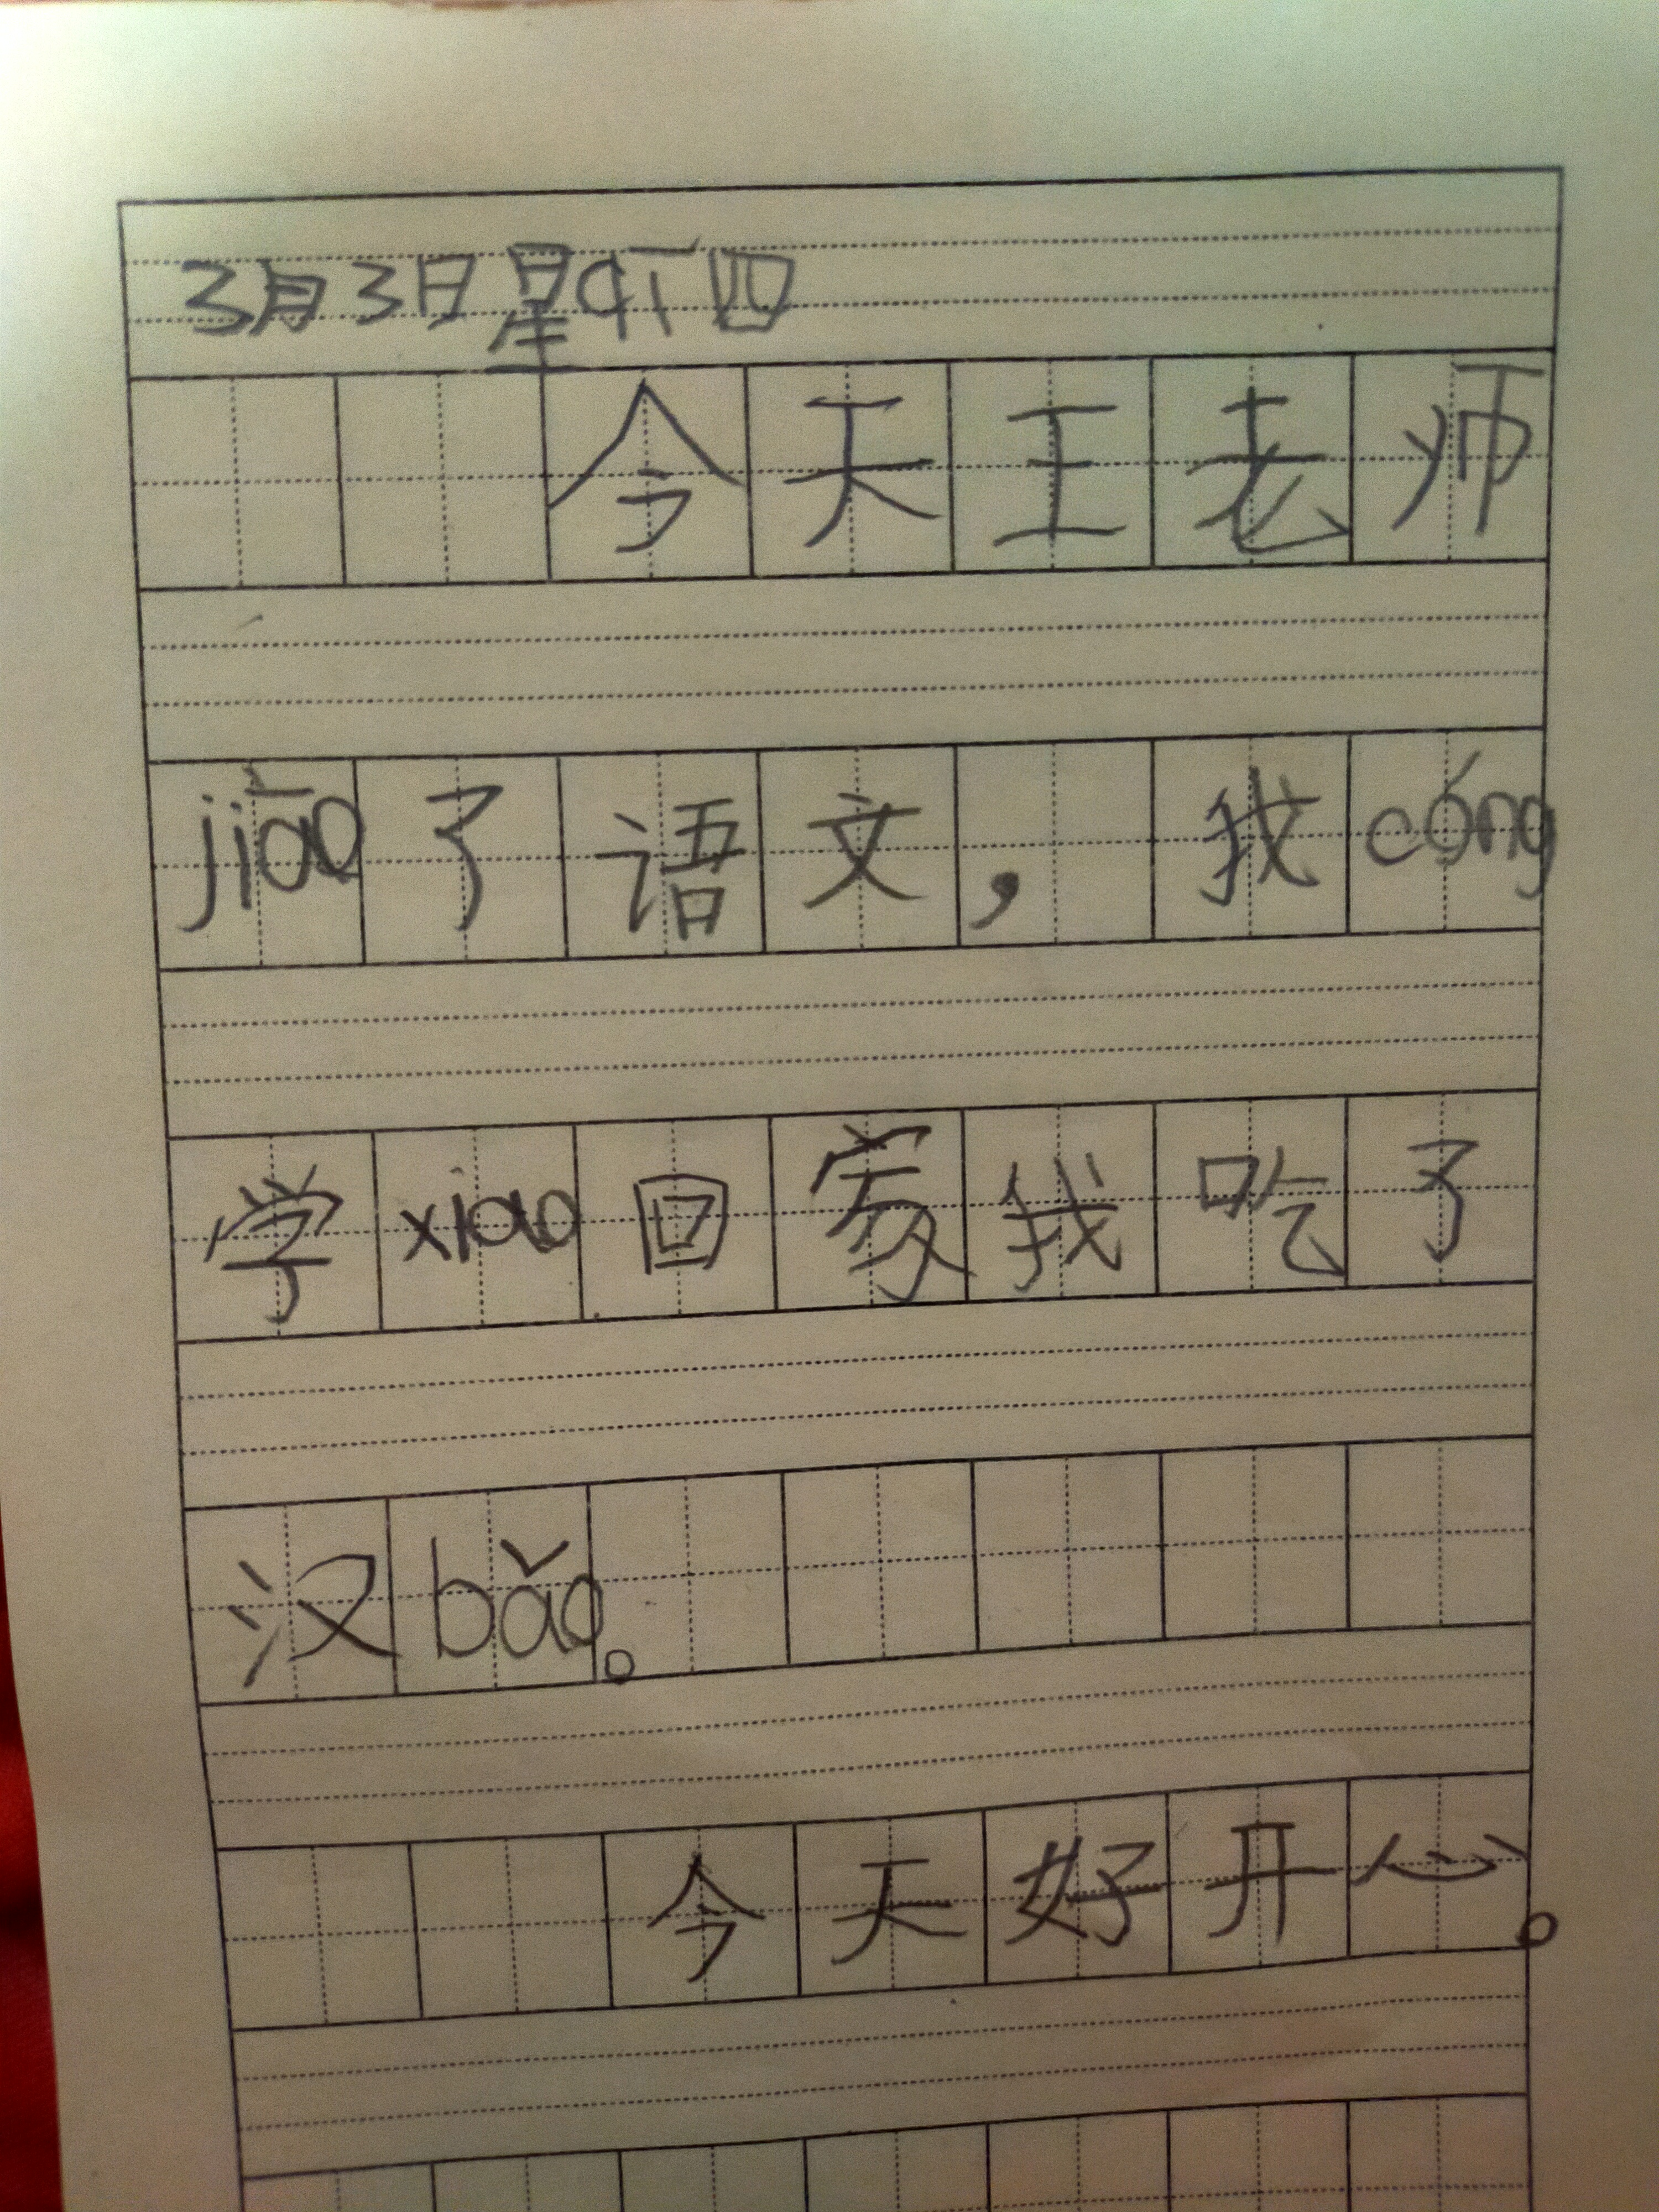 3月3日星吖四
今天王老师
jiāo了语文，我cóng
学xiao回家我吃了
汉bǎo。
今天好开心。